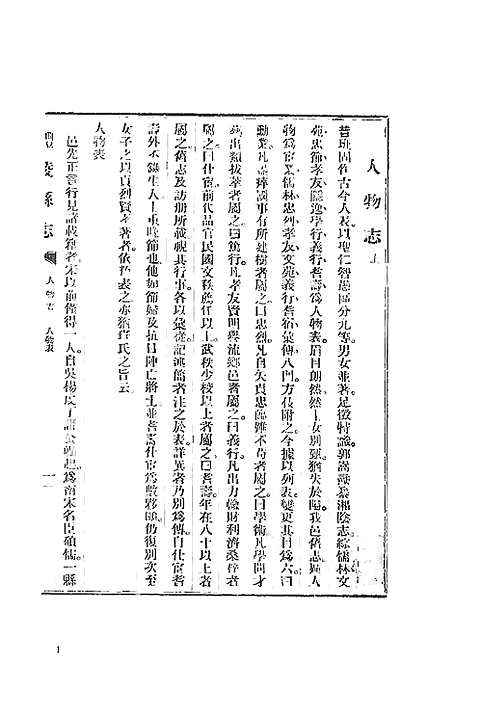 人物志上
昔班固作古今人表以聖仁智愚區分九等男女並著足徵特識郭嵩燾纂湘陰志綜儒林文
苑忠節孝友隱逸學行義行耆壽爲人物表眉目朗然然士女別甄猶失於隘我邑舊志區人
物爲宦業儒林忠烈孝友文苑義行耆宿彙傳八門方伎附之今據以列表變更其目爲六曰
勳業凡盡瘁國事有所建樹者屬之曰忠烈凡自矢貞忠臨難不苟者屬之曰學術凡學問才
 出類拔萃者屬之曰篤行凡孝友賢明譽流鄉邑者屬之曰義行凡出力輸財利濟桑梓者
屬之曰仕宦前代品官民國文秩薦任以上武秩少校以上者屬之曰耆壽年在八十以上者
屬之舊志及訪册所載視其行事各以彙從記述簡者注之於表詳異者乃別爲傳自仕宦耆
壽外不錄生人士重晚節也他如節婦及抗日陣亡將士並耆壽仕宦爲數夥頤仍復別次至
女子之以貞烈賢孝著者依 表之亦猶班氏之旨云
人物表
邑先正言行見諸載籍者宋以前僅得一人自吳楊 丁諸公崛起爲南宋名臣碩儒一縣
醴陵縣志
人物志 人物表
一
1